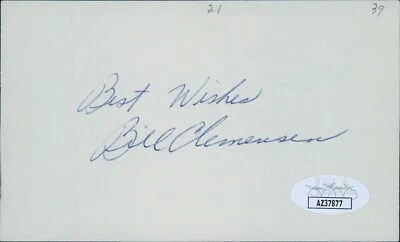 21 39
Best Wishes
Bill Clemensen
AZ37877